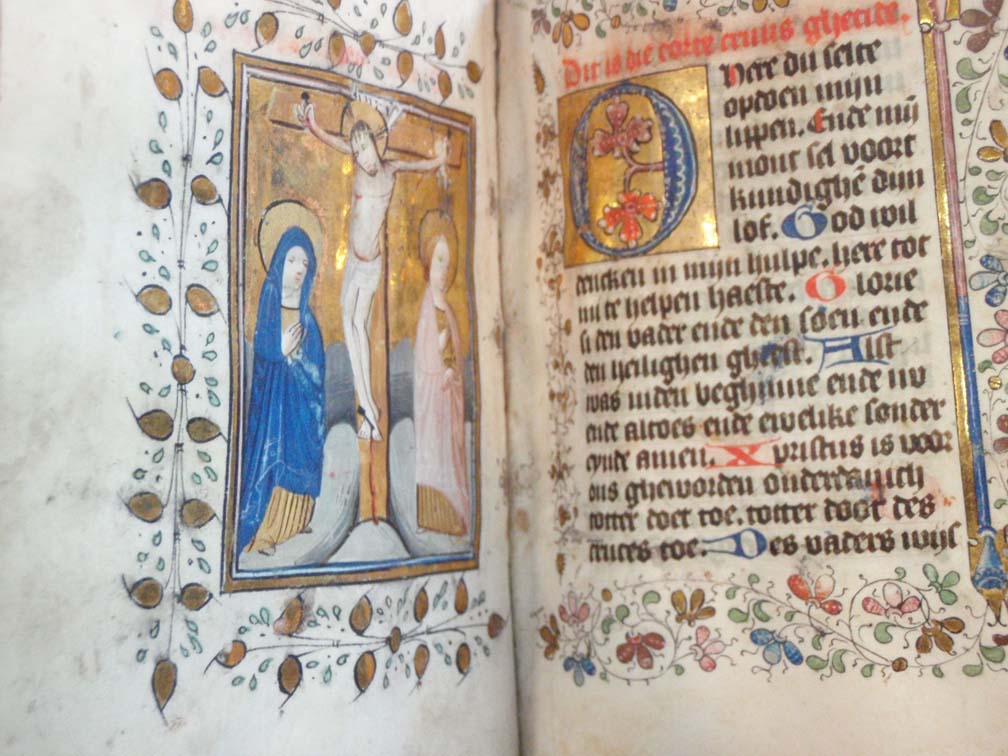 Dit is die corte cruus ghetide.
Here du selte
opdoen mijn
lippen. Ende mī
mont sel voort
kundighē dijn
lof. God wil
dencken in mijn hulpe. here tot
mi te helpen haeste. Glorie
si den vader ende den soen ende
den heilighen gheest. Alst
was inden beghinne ende nv
ende altoes ende ewelike sonder
eynde amen. Xpristus is voor
ons gheworden onderdanich
totter doet toe. totter doot des
cruces toe. Des vaders wijs